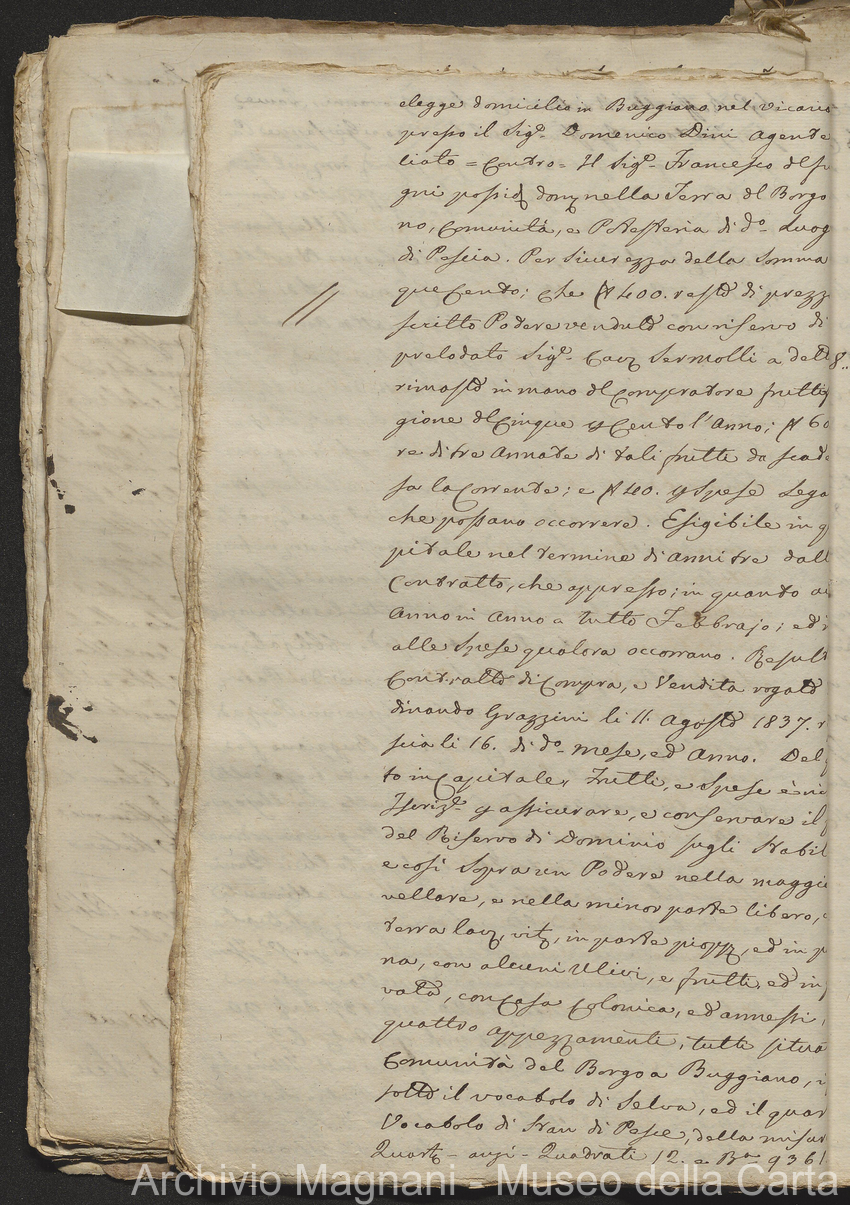 elegge domicilio in Buggiano nel Vicario
presso il Sig.e Domenico Dini Agente
liato = Contro = Il Sig.e Francesco del fu
gni possid. dom. nella Terra del Borgo
no, Comunità, e Potesteria di d.o Luog
di Pescia. Per sicurezza della Somma
quecento; che 400. rest.o di prezz
scritto Podere venduto con riservo di
prelodato Sig.e Cav. Sermolli a dett
rimasto in mano del Compratore frutti
gione del Cinque per Cento l'Anno; 60
re di tre Annate di tali frutti da scade
sa la Corrente; e 40. per Spese Lega
che possano occorrere. Esigibile in q
pitale nel termine di anni tre dall
Contratto, che appresso; in quanto ai
Anno in Anno a tutto Febbrajo; ed i
alle Spese qualora occorrano. Result
Contratto di Compra, e Vendita rogato
dinando Grazzini li 11. Agosto 1837. r
scia li 16. di d.o mese, ed Anno. Del
to in Capitale, Frutti, e Spese è
Iscriz.e per assicurare, e conservare il
del Riservo di Dominio sugli Stabil
e così sopra un Podere nella maggio
vellare, e nella minor parte libero,
terra lav. vit. in parte piopp. ed in p
na, con alcuni Ulivi, e frutti, ed in
vata, con Casa Colonica, ed annessi,
quattro appezzamenti, tutti situa
Comunità del Borgo a Buggiano, i
sotto il vocabolo di Selva, ed il quar
Vocabolo di Pian di Pesce, della misur
Quart. Quadrati 12. e B.a 9361
Archivio Magnani - Museo della Carta